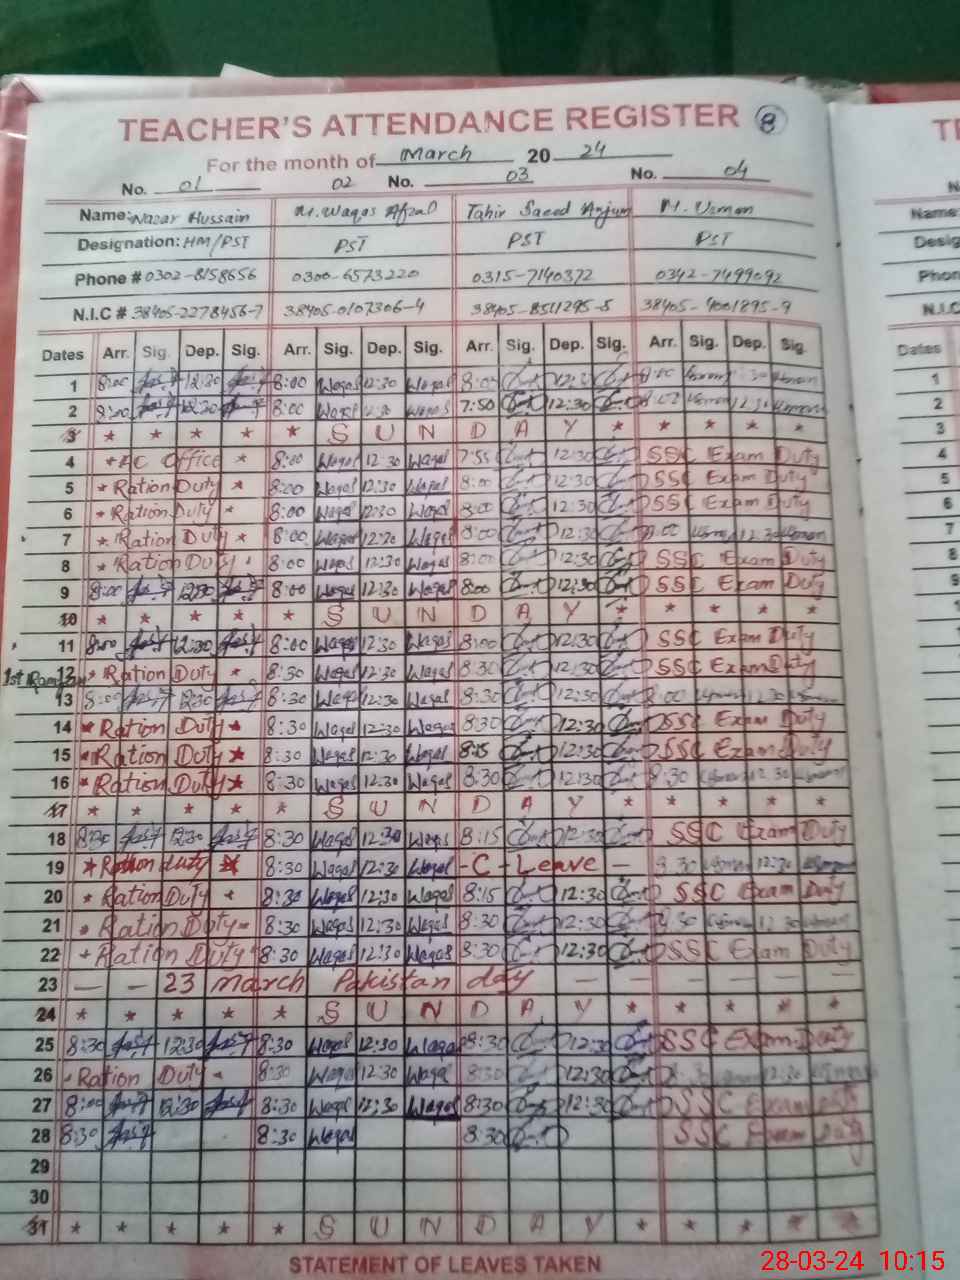 TEACHER'S ATTENDANCE REGISTER 8
For the month of March 20 24
No. 01 02 No. 03 No. 04
Name: Nazar Hussain M. Waqas Afzal Tahir Saeed Anjum M. Usman
Designation: HM/PST PST PST PST
Phone # 0302-8158656 0300-6573220 0315-7140372 0342-7499092
N.I.C # 38405-2278456-7 38405-0107306-4 38405-8511295-5 38405-4001895-9
Dates Arr. Sig. Dep. Sig. Arr. Sig. Dep. Sig. Arr. Sig. Dep. Sig. Arr. Sig. Dep. Sig.
1 8:00 12:30 8:00 Waqas 12:30 Waqas 8:00 12:30 8:00
2 8:00 12:30 8:00 Waqas 12:30 Waqas 7:50 12:30 8:00 12:30
3 * * * * * S U N D A Y * * * * *
4 * AC Office * 8:00 Waqas 12:30 Waqas 7:55 12:30 SSC Exam Duty
5 * Ration Duty * 8:00 Waqas 12:30 Waqas 8:00 12:30 SSC Exam Duty
6 * Ration Duty * 8:00 Waqas 12:30 Waqas 8:00 12:30 SSC Exam Duty
7 * Ration Duty * 8:00 Waqas 12:30 Waqas 8:00 12:30 8:00 Usman 12:30 Usman
8 * Ration Duty * 8:00 Waqas 12:30 Waqas 8:00 12:30 SSC Exam Duty
9 8:00 12:30 8:00 Waqas 12:30 Waqas 8:00 12:30 SSC Exam Duty
10 * * * * * S U N D A Y * * * * *
11 8:00 12:30 8:00 Waqas 12:30 Waqas 8:00 12:30 SSC Exam Duty
1st Ramzan 12 * Ration Duty * 8:30 Waqas 12:30 Waqas 8:30 12:30 SSC Exam Duty
13 8:00 12:30 8:30 Waqas 12:30 Waqas 8:30 12:30 8:00 Usman 12:30 Usman
14 * Ration Duty * 8:30 Waqas 12:30 Waqas 8:30 12:30 SSC Exam Duty
15 * Ration Duty * 8:30 Waqas 12:30 Waqas 8:15 12:30 SSC Exam Duty
16 * Ration Duty * 8:30 Waqas 12:30 Waqas 8:30 12:30 8:30 Usman 12:30 Usman
17 * * * * * S U N D A Y * * * * *
18 8:30 12:30 8:30 Waqas 12:30 Waqas 8:15 12:30 SSC Exam Duty
19 * Ration duty * 8:30 Waqas 12:30 Waqas - C - Leave - 8:30 Usman 12:30 Usman
20 * Ration Duty * 8:30 Waqas 12:30 Waqas 8:15 12:30 SSC Exam Duty
21 * Ration Duty * 8:30 Waqas 12:30 Waqas 8:30 12:30 8:30 Usman 12:30 Usman
22 * Ration Duty * 8:30 Waqas 12:30 Waqas 8:30 12:30 SSC Exam Duty
23 — — 23 March Pakistan day — — — — —
24 * * * * * S U N D A Y * * * * *
25 8:30 12:30 8:30 Waqas 12:30 Waqas 8:30 12:30 SSC Exam Duty
26 * Ration Duty * 8:30 Waqas 12:30 Waqas 8:30 12:30 8:30 Usman 12:30 Usman
27 8:00 12:30 8:30 Waqas 12:30 Waqas 8:30 12:30 SSC Exam
28 8:30 8:30 Waqas 8:30 SSC Exam Duty
29
30
31 * * * * * S U N D A Y * * * * *
STATEMENT OF LEAVES TAKEN
28-03-24 10:15